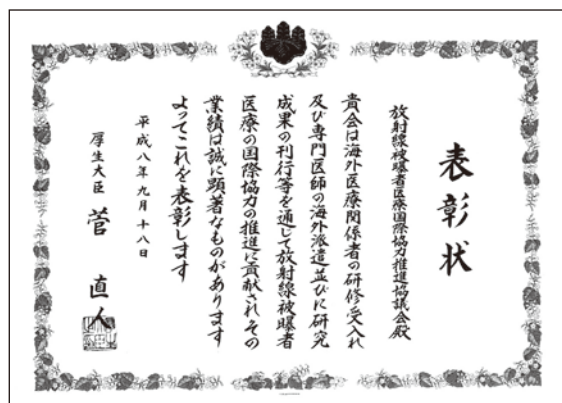 表彰状
放射線被曝者医療国際協力推進協議会殿
貴会は海外医療関係者の研修受入れ
及び専門医師の海外派遣並びに研究
成果の刊行等を通じて放射線被曝者
医療の国際協力の推進に貢献されその
業績は誠に顕著なものがあります
よってこれを表彰します
平成八年九月十八日
厚生大臣 菅 直人